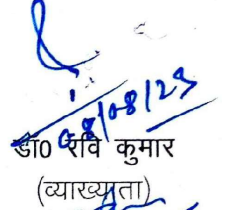 08/08/23
डा0 रवि कुमार
(व्याख्याता)